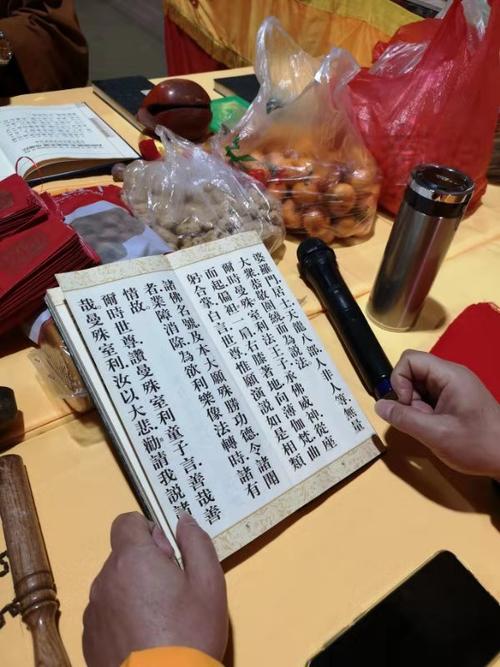 婆羅門、居士、天龍八部、人非人等、無量
大眾恭敬圍繞而為說法。
爾時曼殊室利法王子、承佛威神、從座
而起、偏袒一肩、右膝著地、向薄伽梵、曲
躬合掌白言、世尊、惟願演說如是相類
諸佛名號、及本大願殊勝功德、令諸聞
者業障消除、為欲利樂像法轉時、諸有
情故。
爾時世尊、讚曼殊室利童子言、善哉善
哉。曼殊室利、汝以大悲、勸請我說諸